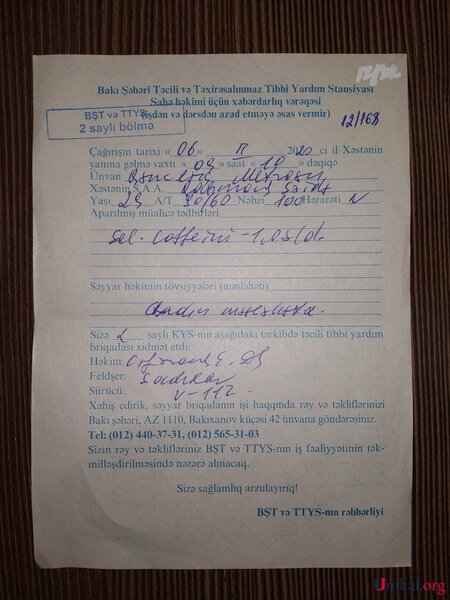 Bakı Şəhəri Təcili və Təxirəsalınmaz Tibbi Yardım Stansiyası
Sahə həkimi üçün xəbərdarlıq vərəqəsi
(işdən və dərsdən azad etməyə əsas vermir)
12/168
BŞT və TTYS
2 saylı bölmə
Çağırışın tarixi « 06 » II 2020 ci il Xəstənin
yanına gəlmə vaxtı « 09 » saat « 10 » dəqiqə
Ünvan Gənclik Metrosu
Xəstənin S.A.A.
Yaşı A/T 90/60 Nəbzi 100 Hərarəti N
Aparılmış müalicə tədbirləri
Sol. Coffeini - 1,0
Səyyar həkimin tövsiyyələri (məsləhəti)
Sizə 2 saylı KYS-nin aşağıdakı tərkibdə təcili tibbi yardım
briqadası xidmət etdi:
Həkim:
Feldşer:
Sürücü: V-112
Xahiş edirik, səyyar briqadanın işi haqqında rəy və təkliflərinizi
Bakı şəhəri, AZ 1110, Bakıxanov küçəsi 42 ünvana göndərəsiniz.
Tel: (012) 440-37-31, (012) 565-31-03
Sizin rəy və təklifləriniz BŞT və TTYS-nın iş fəaliyyətinin tək-
milləşdirilməsində nəzərə alınacaq.
Sizə sağlamlıq arzulayırıq!
BŞT və TTYS-nın rəhbərliyi
Unikal.org